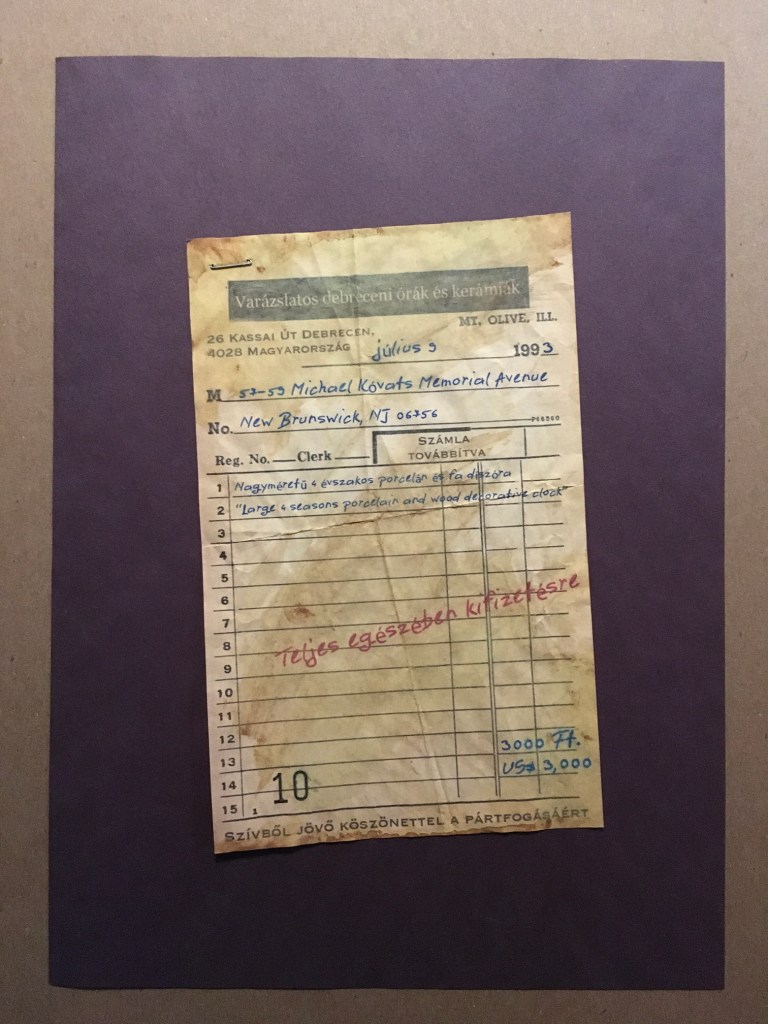 Varázslatos debreceni órák és kerámiák
MT. OLIVE, ILL.
26 KASSAI ÚT DEBRECEN,
4028 MAGYARORSZÁG
július 9 1993
M 57-59 Michael Kóvats Memorial Avenue
No. New Brunswick, NJ 06756
Reg. No. Clerk
SZÁMLA
TOVÁBBÍTVA
1 Nagyméretű 4 évszakos porcelán és fa díszóra
2 "Large 4 seasons porcelain and wood decorative clock"
3
4
5
6
7
8
Teljes egészében kifizetésre
9
10
11
12
13 3000 Ft.
14 US$ 3,000
15 1 10
SZÍVBŐL JÖVŐ KÖSZÖNETTEL A PÁRTFOGÁSÁÉRT